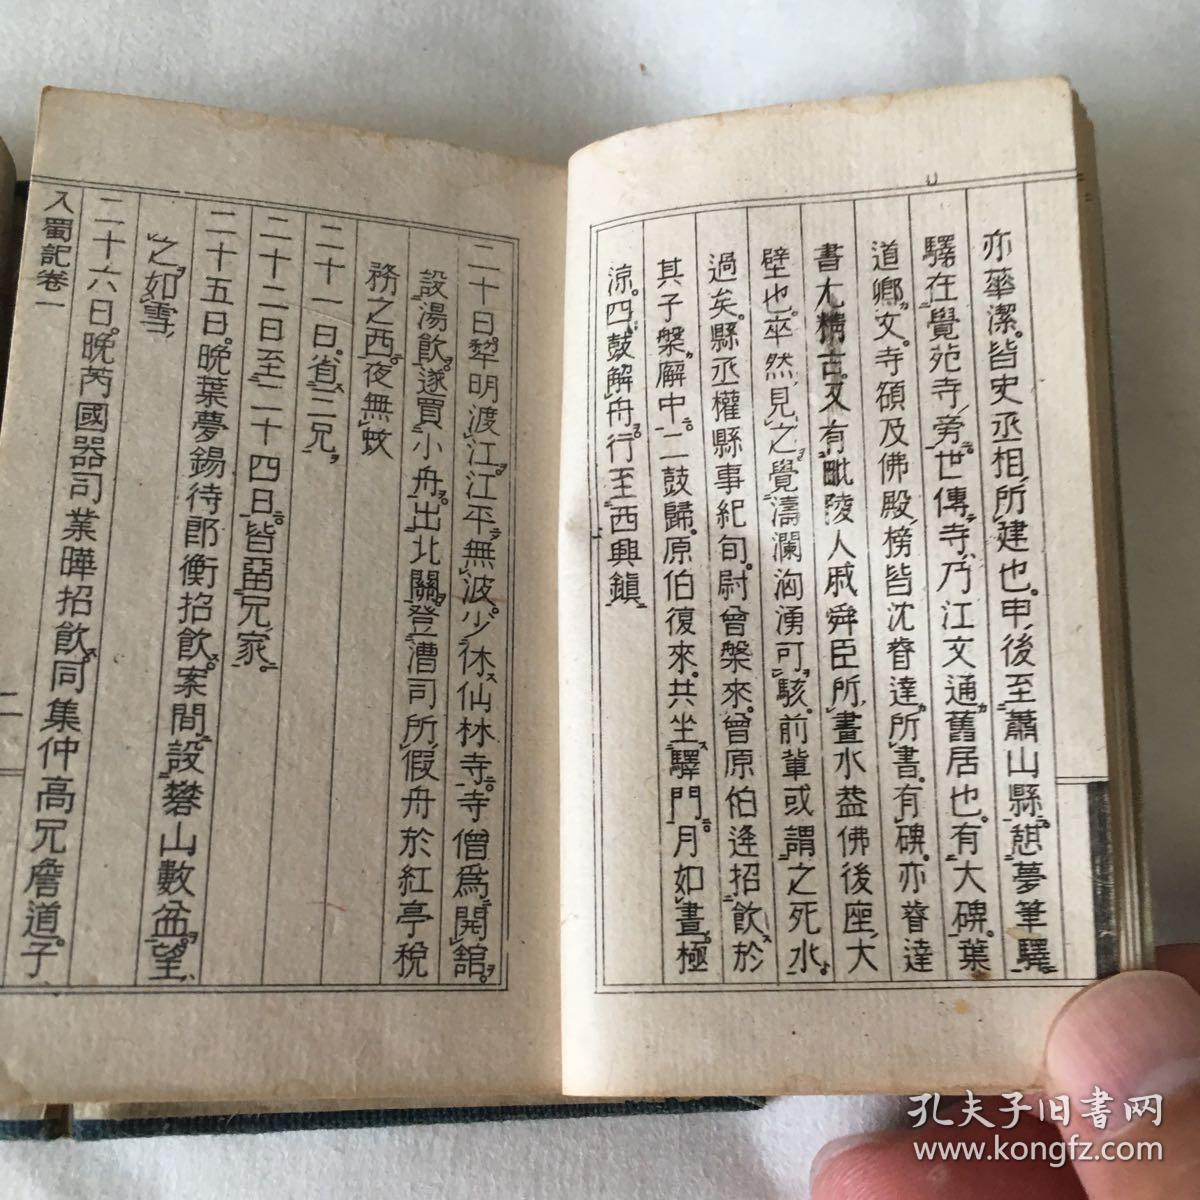 亦華潔皆史丞相所建也申後至蕭山縣憇夢筆驛
驛在覺苑寺旁世傳寺乃江文通舊居也有大碑葉
道鄉文寺額及佛殿榜皆沈睿達所書有碑亦睿達
書尤精古又有毗陵人戚舜臣所畫水蓋佛後座大
壁也卒然見之覺濤瀾洶湧可駭前輩或謂之死水
過矣縣丞權縣事紀旬尉曾槃來曾原伯逢招飲於
其子槃廨中二鼓歸原伯復來共坐驛門月如晝極
涼四鼓解舟行至西興鎮
二十日犂明渡江江平無波少休仙林寺寺僧爲開館
設湯飲遂買小舟出北關登漕司所假舟於紅亭稅
務之西夜無蚊
二十一日省三兄
二十二日至二十四日皆留兄家
二十五日晚葉夢錫待郎衡招飲案間設礬山數盆望
之如雪
二十六日晚芮國器司業曄招飲同集仲高兄詹道子
入蜀記卷一
二
孔夫子旧书网
www.kongfz.com